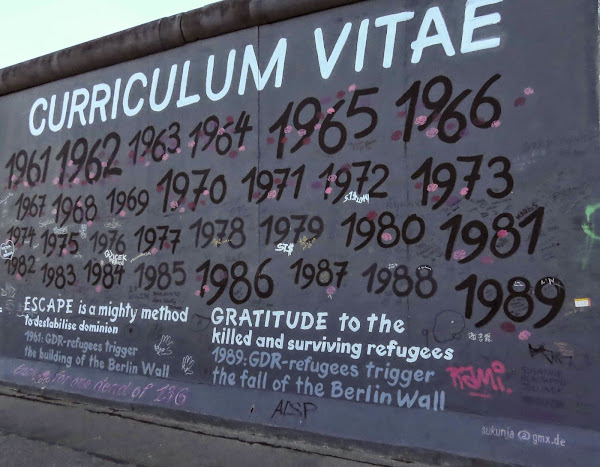 CURRICULUM VITAE
1961 1962 1963 1964 1965 1966
1967 1968 1969 1970 1971 1972 1973
1974 1975 1976 1977 1978 1979 1980 1981
1982 1983 1984 1985 1986 1987 1988 1989
ESCAPE is a mighty method
to destabilise dominion
1961: GDR-refugees trigger
the building of the Berlin Wall
GRATITUDE to the
killed and surviving refugees
1989: GDR-refugees trigger
the fall of the Berlin Wall
RAMi.
for one dead of 136
sukunja@gmx.de